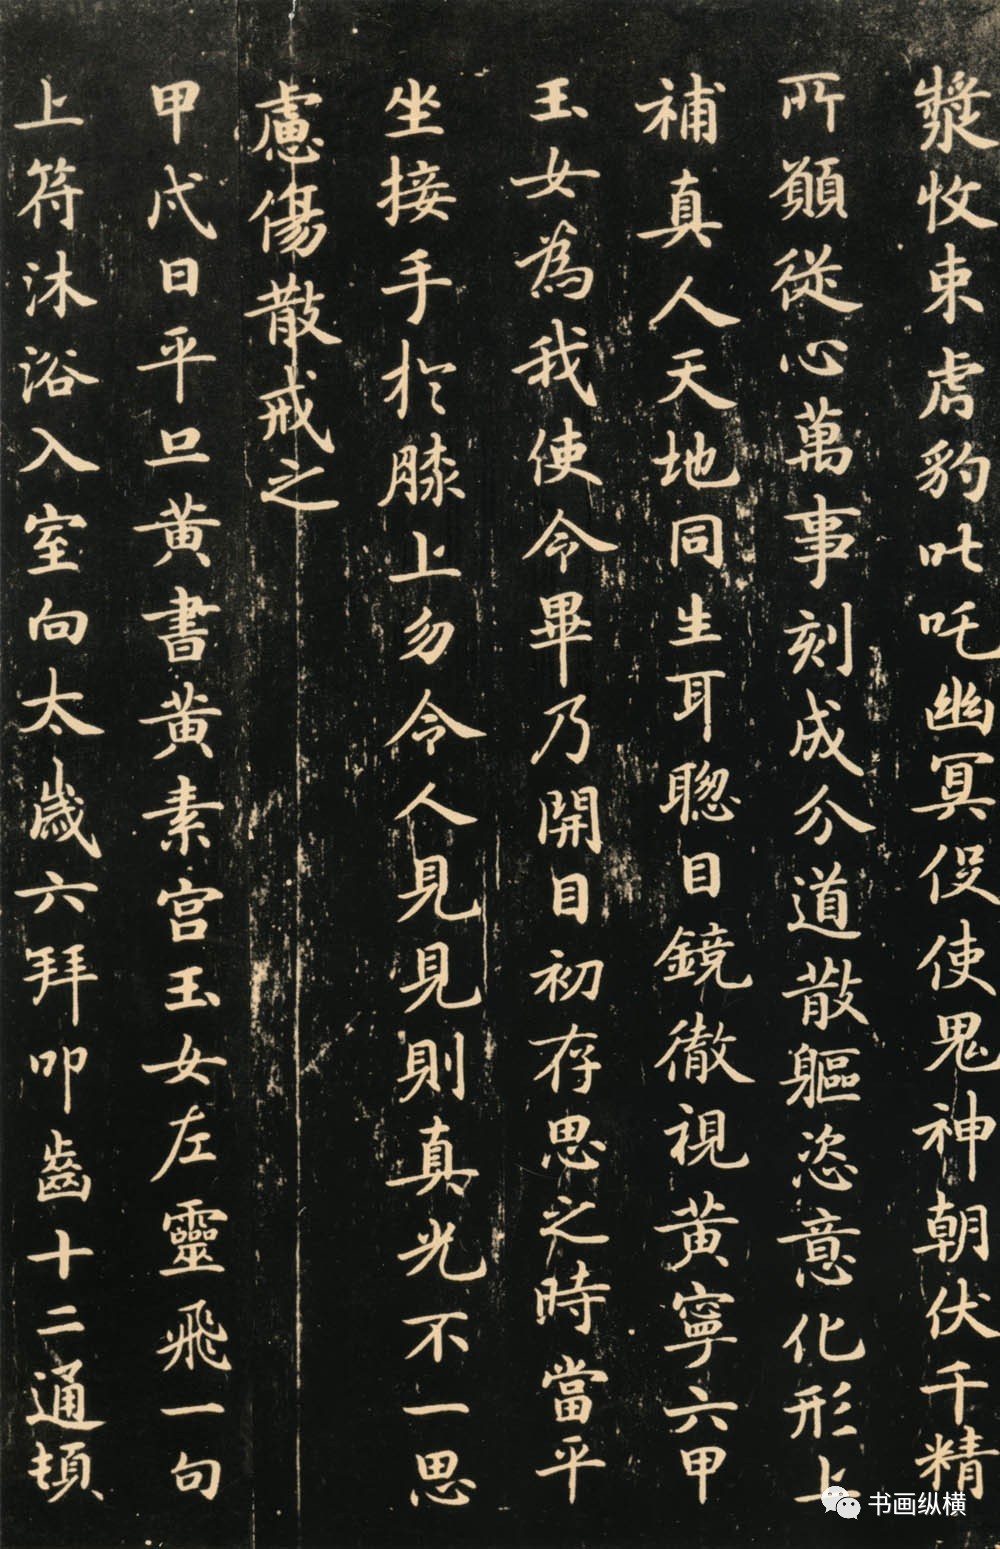 漿收束虎豹叱吒幽冥役使鬼神朝伏千精
所願從心萬事刻成分道散軀恣意化形上
補真人天地同生耳聰目鏡徹視黃寧六甲
玉女為我使令畢乃開目初存思之時當平
坐接手於膝上勿令人見見則真光不一思
慮傷散戒之
甲戌日平旦黃書黃素宮玉女左靈飛一旬
上符沐浴入室向太歲六拜叩齒十二通頓
书画纵横